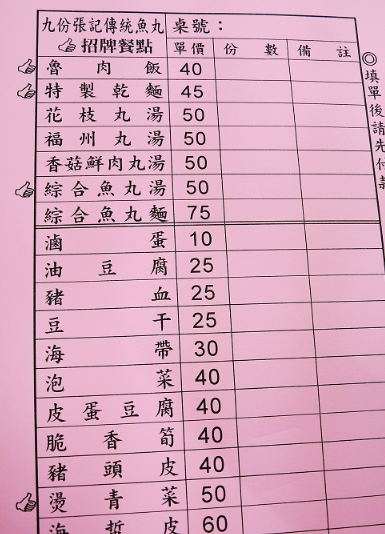 九份張記傳統魚丸 桌號：
招牌餐點 單價 份數 備註
魯肉飯 40
特製乾麵 45
花枝丸湯 50
福州丸湯 50
香菇鮮肉丸湯 50
綜合魚丸湯 50
綜合魚丸麵 75
滷蛋 10
油豆腐 25
豬血 25
豆干 25
海帶 30
泡菜 40
皮蛋豆腐 40
脆香筍 40
豬頭皮 40
燙青菜 50
海蜇皮 60
◎填單後請先付款